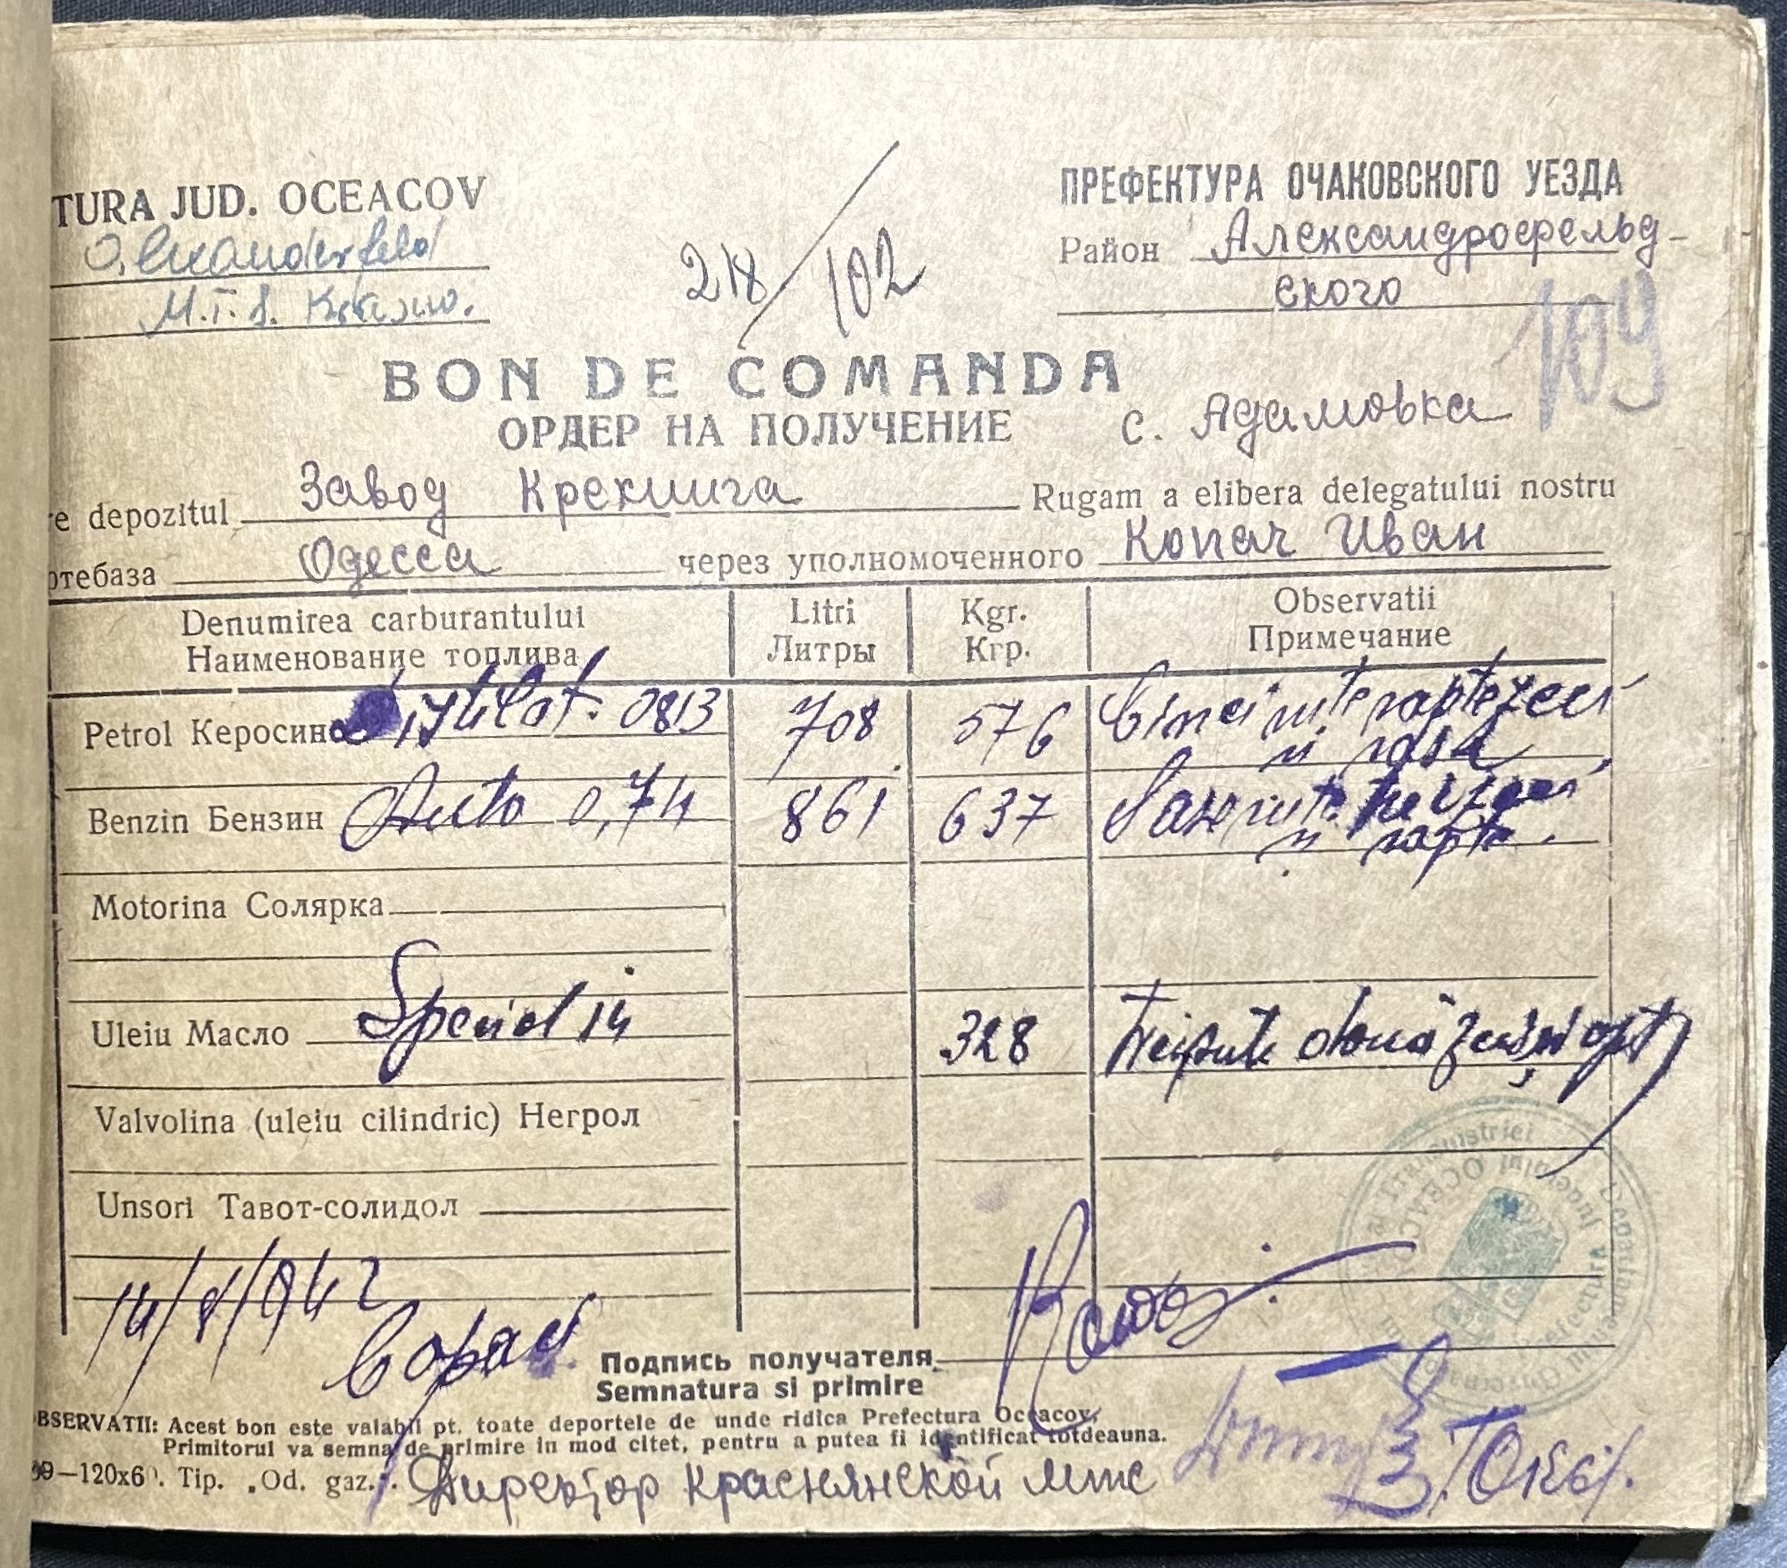 TURA JUD. OCEACOV
Alexanderfeld
M.T.S. Krasno.
218/102
ПРЕФЕКТУРА ОЧАКОВСКОГО УЕЗДА
Район Александрофельд-
ского
109
BON DE COMANDA
ОРДЕР НА ПОЛУЧЕНИЕ
с. Адамовка
re depozitul Завод Крекинга Rugam a elibera delegatului nostru
фтебаза Одесса через уполномоченного Копач Иван
Denumirea carburantului Litri Kgr. Observatii
Наименование топлива Литры Кгр. Примечание
Petrol Керосин Distilat. 0813 708 576 Cinci sute șaptezeci
și șasă
Benzin Бензин Auto 0,74 861 637 Șase sute treizeci
și șapte.
Motorina Солярка
Uleiu Масло Special 14 328 treisute douăzeci și opt
Valvolina (uleiu cilindric) Негрол
Unsori Тавот-солидол
14/8/942
Copaci
Подпись получателя
Semnatura si primire
OBSERVATII: Acest bon este valabil pt. toate deportele de unde ridica Prefectura Oceacov,
Primitorul va semna de primire in mod citet, pentru a putea fi identificat totdeauna.
99—120x60. Tip. „Od. gaz."
Директор Краснянской мтс